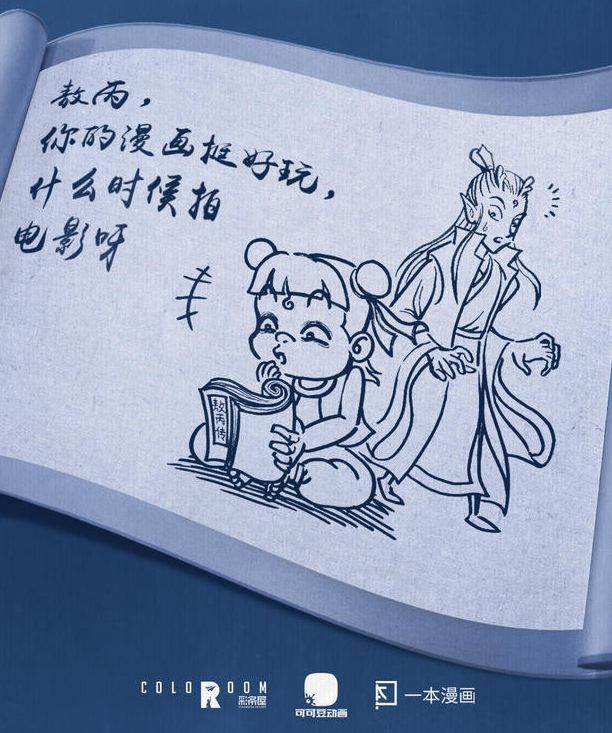 敖丙，
你的漫画挺好玩，
什么时候拍
电影呀
敖丙传
COLOROOM
彩条屋
可可豆动画
一本漫画